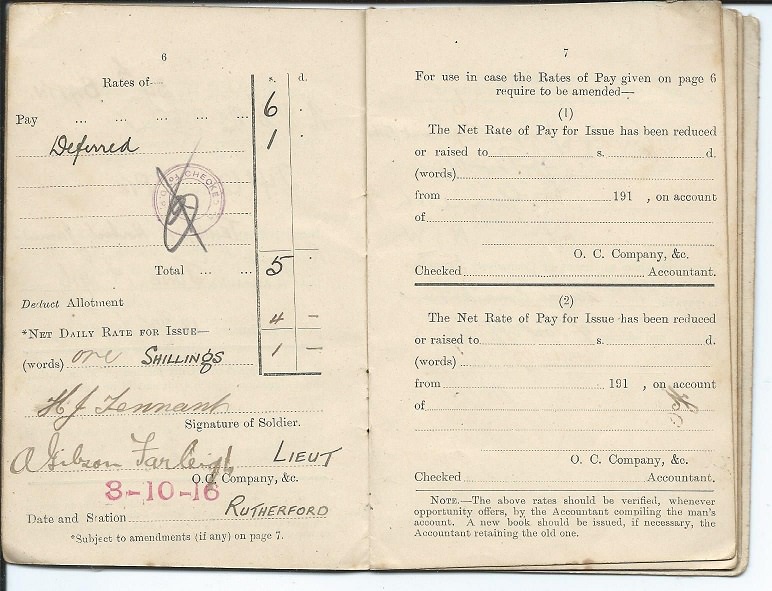 6
Rates of—
s. d.
Pay ... ... ... ... ... 6 .
Deferred 1 .
CHECKED
Total ... ... 5 .
Deduct Allotment 4 —
*NET DAILY RATE FOR ISSUE—
(words) one SHILLINGS 1 —
H J Tennant
Signature of Soldier.
A Gibson Farleigh LIEUT
O.C. Company, &c.
3-10-16
Date and Station RUTHERFORD
*Subject to amendments (if any) on page 7.
7
For use in case the Rates of Pay given on page 6
require to be amended—
(1)
The Net Rate of Pay for Issue has been reduced
or raised to s. d.
(words)
from 191 , on account
of
O. C. Company, &c.
Checked Accountant.
(2)
The Net Rate of Pay for Issue has been reduced
or raised to s. d.
(words)
from 191 , on account
of
O. C. Company, &c.
Checked Accountant.
NOTE.—The above rates should be verified, whenever
opportunity offers, by the Accountant compiling the man's
account. A new book should be issued, if necessary, the
Accountant retaining the old one.